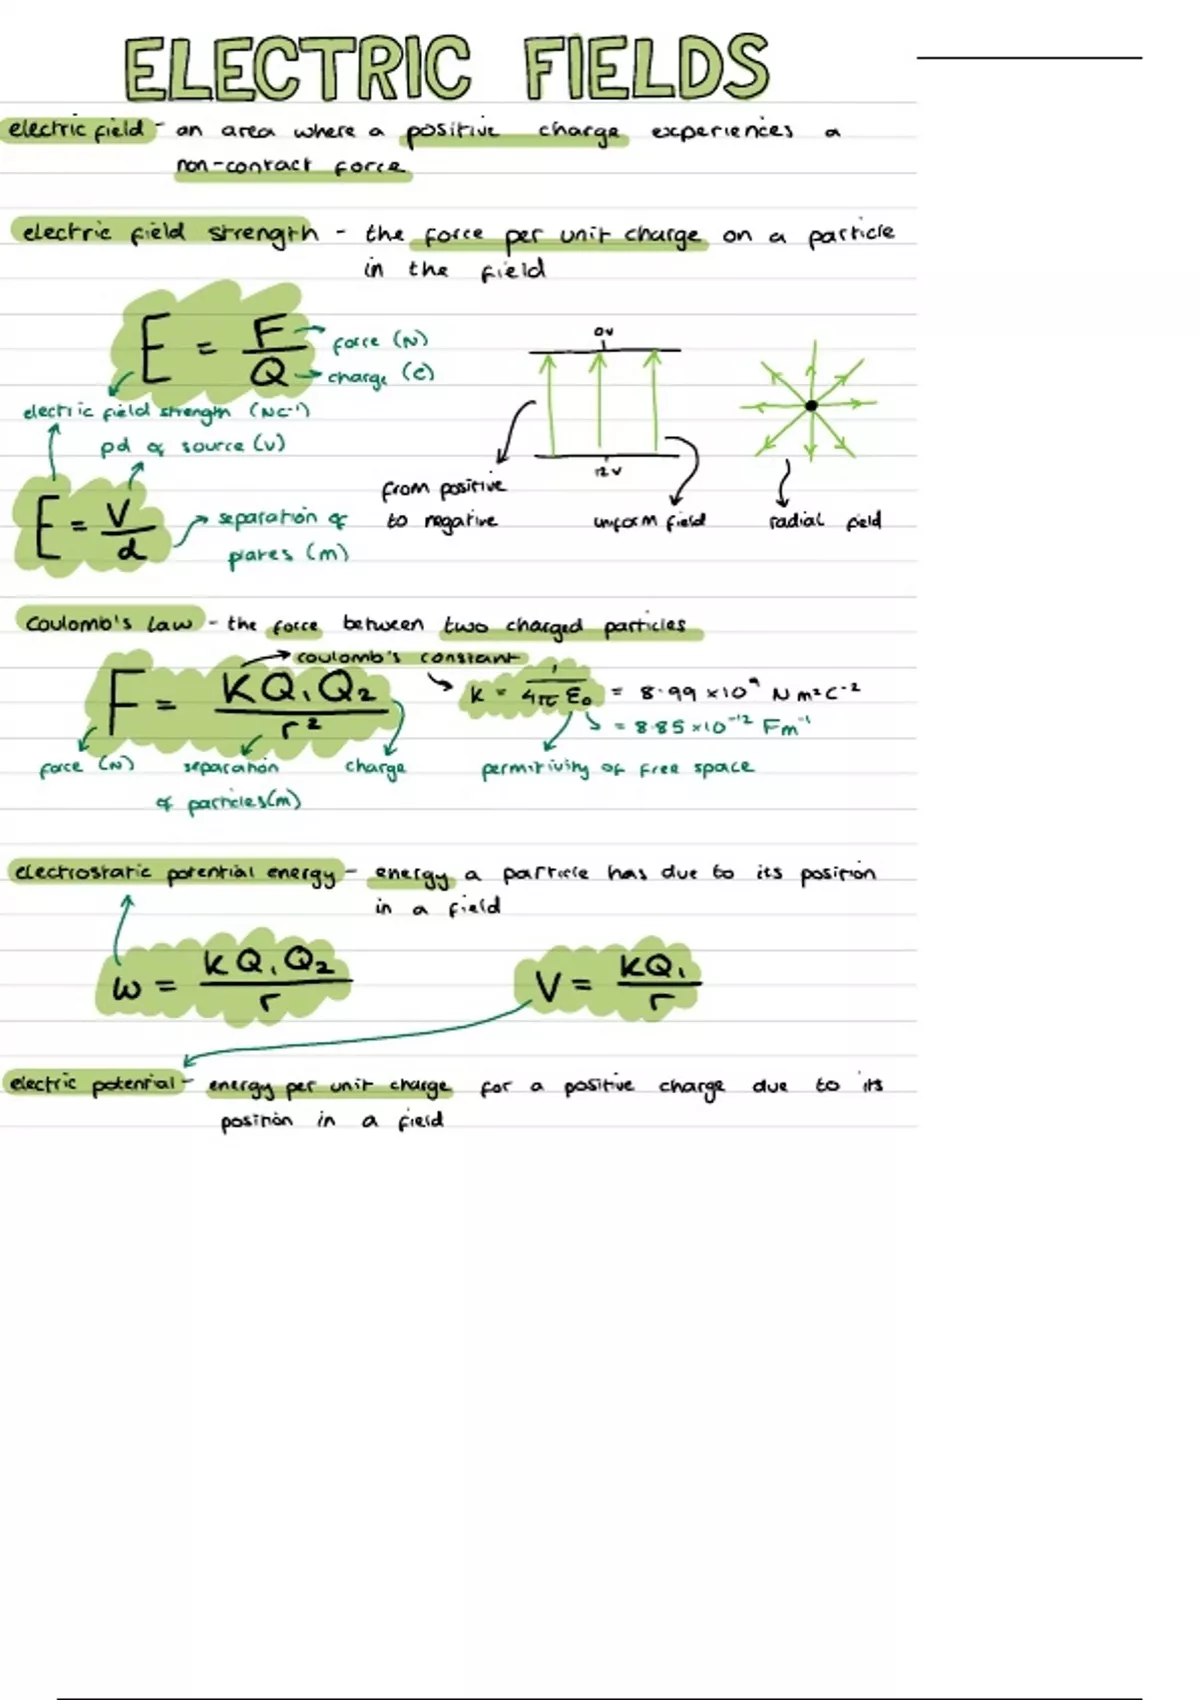 ELECTRIC FIELDS
electric field - an area where a positive charge experiences a
non-contact force
electric field strength - the force per unit charge on a particle
in the field
E = F/Q
force (N)
charge (C)
electric field strength (NC⁻¹)
pd of source (V)
E = V/d
separation of
plates (m)
0V
12V
from positive
to negative
uniform field
radial field
Coulomb's Law - the force between two charged particles
coulomb's constant
F = KQ₁Q₂/r²
k = 1/4πε₀ = 8.99 ×10⁹ N m²C⁻²
= 8.85 ×10⁻¹² Fm⁻¹
force (N)
separation
of particles(m)
charge
permitivity of free space
electrostatic potential energy - energy a particle has due to its position
in a field
W = kQ₁Q₂/r
V = kQ₁/r
electric potential - energy per unit charge for a positive charge due to its
position in a field